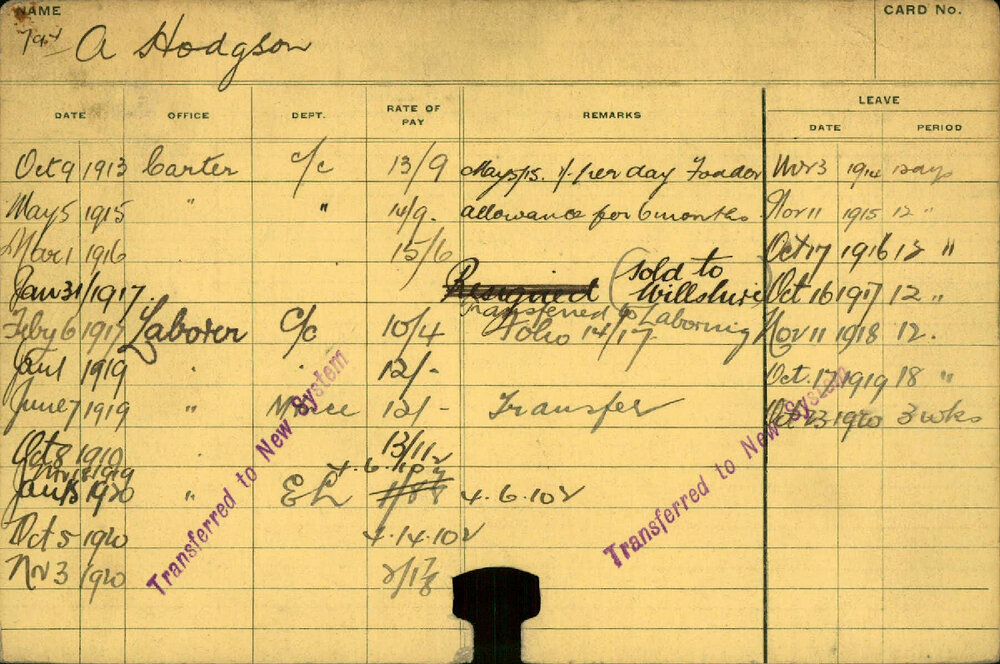 NAME
CARD No.
A Hodgson
LEAVE
DATE OFFICE DEPT. RATE OF PAY REMARKS DATE PERIOD
Oct 9 1913 Carter c/c 13/9 May 5/15. 1/- per day Fodder Nov 3 1914 12 days
May 5 1915 " " 14/9. allowance for 6 months. Nov 11 1915 12 "
Mar 1 1916 15/6 Oct 17 1916 12 "
Jan 31/1917. Resigned (sold to Willshire) Oct 16 1917 12 "
Transferred to Laboring
Feby 6 1917 Laborer C/c 10/4 Folio 14/17 Nov 11 1918 12.
Jan 1 1919 " " 12/- Oct. 17 1919 18 "
June 7 1919 " 12/- Transfer Oct 23 1920 3 wks
Oct 8 1919 13/11½
Nov 18 1919 4.6.10½
Jan 13 1920 " EL 4.6.10½
Oct 5 1920 4.14.10½
Nov 3 1920
Transferred to New System
Transferred to New System